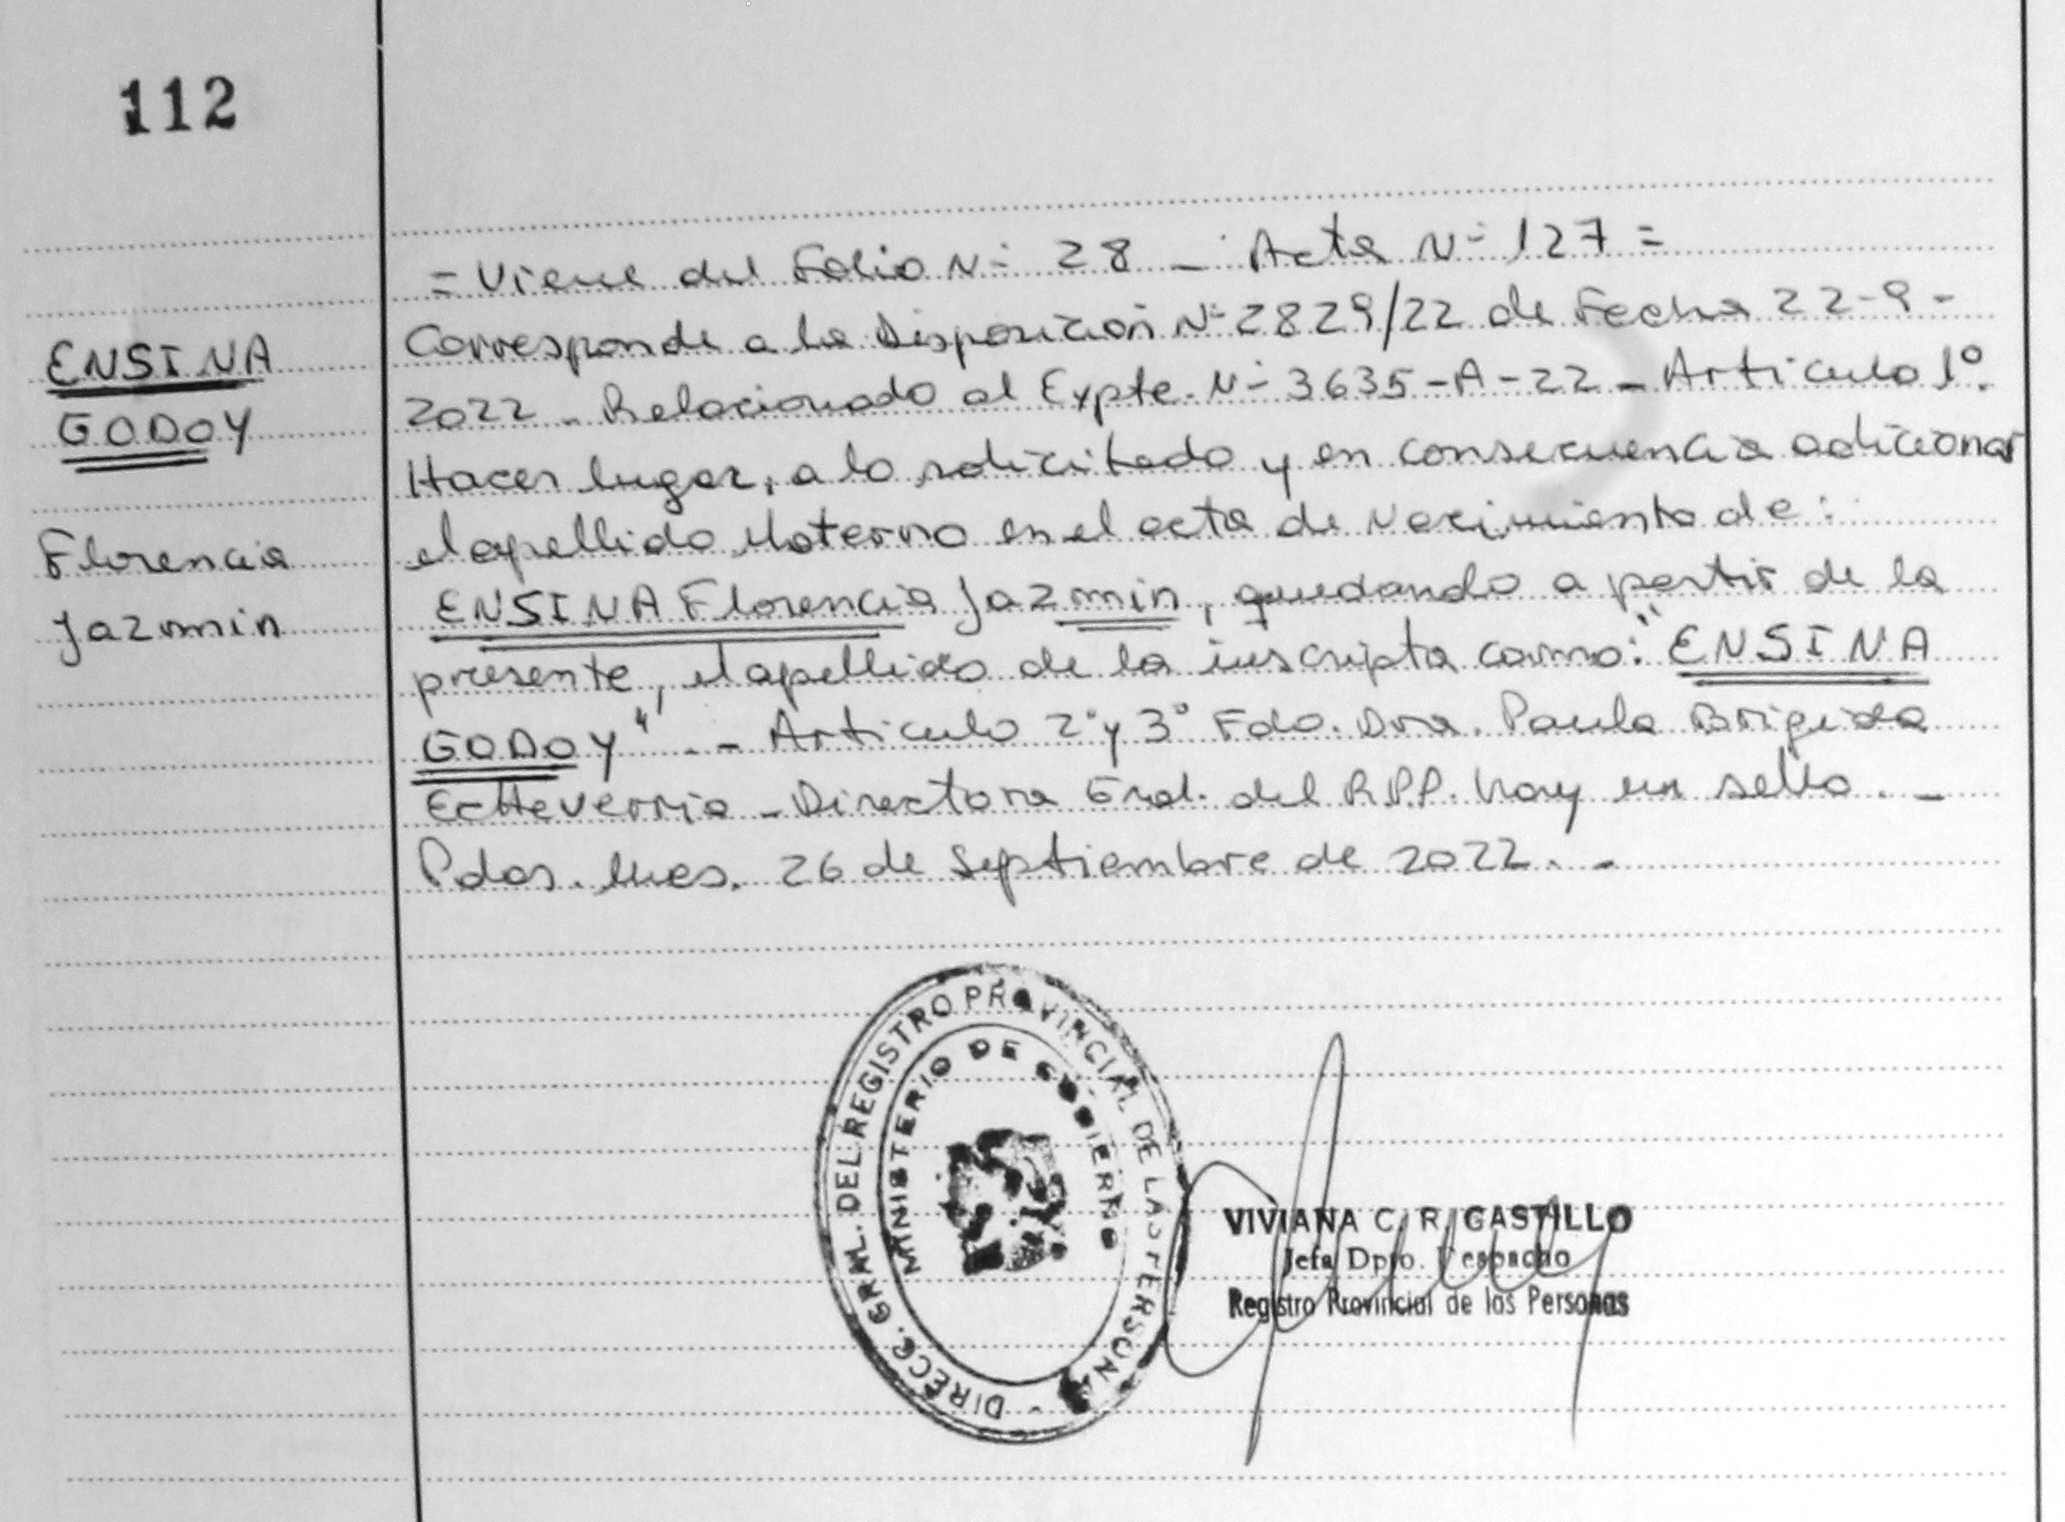 112
ENSINA
GODOY
Florencia
Jazmin
= Viene del Folio N- 28 - Acta N- 127 =
Corresponde a la Disposición N- 2829/22 de Fecha 22-9-
2022 - Relacionado al Expte. N- 3635-A-22 - Articulo 1º.
Hacer lugar, a lo solicitado y en consecuencia adicionar
el apellido Materno en el acta de Nacimiento de:
ENSINA Florencia Jazmin, quedando a partir de la
presente, el apellido de la inscripta como: "ENSINA
GODOY" . - Articulo 2º y 3º Fdo. Dra. Paula Brigida
Echeverria - Directora Gral. del R.P.P. hay un sello. -
Pdas. Mnes. 26 de Septiembre de 2022. -
DIRECC. GRAL. DEL REGISTRO PROVINCIAL DE LAS PERSONAS
MINISTERIO DE GOBIERNO
VIVIANA C. R. CASTILLO
Jefa Dpto. Despacho
Registro Provincial de las Personas